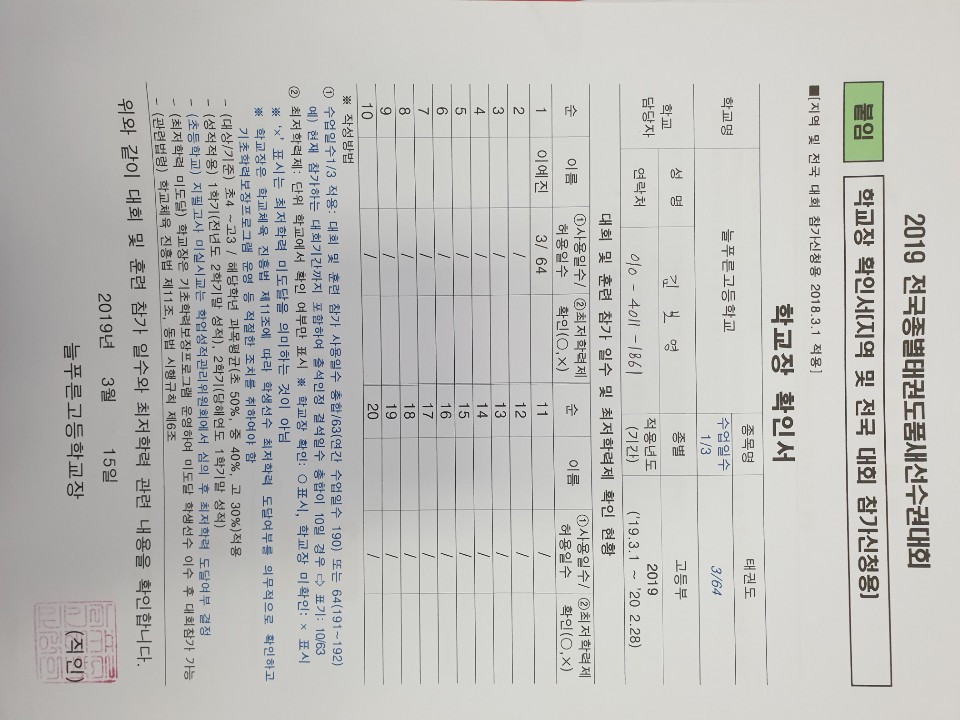 2019 전국종별태권도품새선수권대회
붙임 학교장 확인서[지역 및 전국 대회 참가신청용]
■[지역 및 전국 대회 참가신청용 2018.3.1 적용]
학교장 확인서
학교명 늘푸른고등학교 종목명 태권도
수업일수 1/3 3/64
학교 담당자 성 명 종별 고등부
연락처 010-4011-1861 적용년도 (기간) 2019 ('19.3.1 ~ '20 2.28)
대회 및 훈련 참가 일수 및 최저학력제 확인 현황
순 이름 ①사용일수/허용일수 ②최저학력제 확인(○,×) 순 이름 ①사용일수/허용일수 ②최저학력제 확인(○,×)
1 이예진 3/64 11 /
2 / 12 /
3 / 13 /
4 / 14 /
5 / 15 /
6 / 16 /
7 / 17 /
8 / 18 /
9 / 19 /
10 / 20 /
※ 작성방법
① 수업일수1/3 적용: 대회 및 훈련 참가 사용일수 총합/63(연간 수업일수 190) 또는 64(191~192)
예) 현재 참가하는 대회기간까지 포함하여 출석인정 결석일수 총합이 10일 경우 ⇨ 표기: 10/63
② 최저학력제: 단위 학교에서 확인 여부만 표시 ※ 학교장 확인: ○표시, 학교장 미확인: × 표시
※ '×' 표시는 최저학력 미도달을 의미하는 것이 아님
※ 학교장은 학교체육 진흥법 제11조에 따라 학생선수 최저학력 도달여부를 의무적으로 확인하고
기초학력보장프로그램 운영 등 적절한 조치를 취하여야 함
- (대상/기준) 초4 ~고3 / 해당학년 과목평균(초 50%, 중 40%, 고 30%)적용
- (성적적용) 1학기(전년도 2학기말 성적), 2학기(당해연도 1학기말 성적)
- (초등학교) 지필고사 미실시교는 학업성적관리위원회에서 심의 후 최저학력 도달여부 결정
- (최저학력 미도달) 학교장은 기초학력보장프로그램 운영하여 미도달 학생선수 이수 후 대회참가 가능
- (관련법령) 학교체육 진흥법 제11조, 동법 시행규칙 제6조
위와 같이 대회 및 훈련 참가 일수와 최저학력 관련 내용을 확인합니다.
2019년 3월 15일
늘푸른고등학교장 (직인)